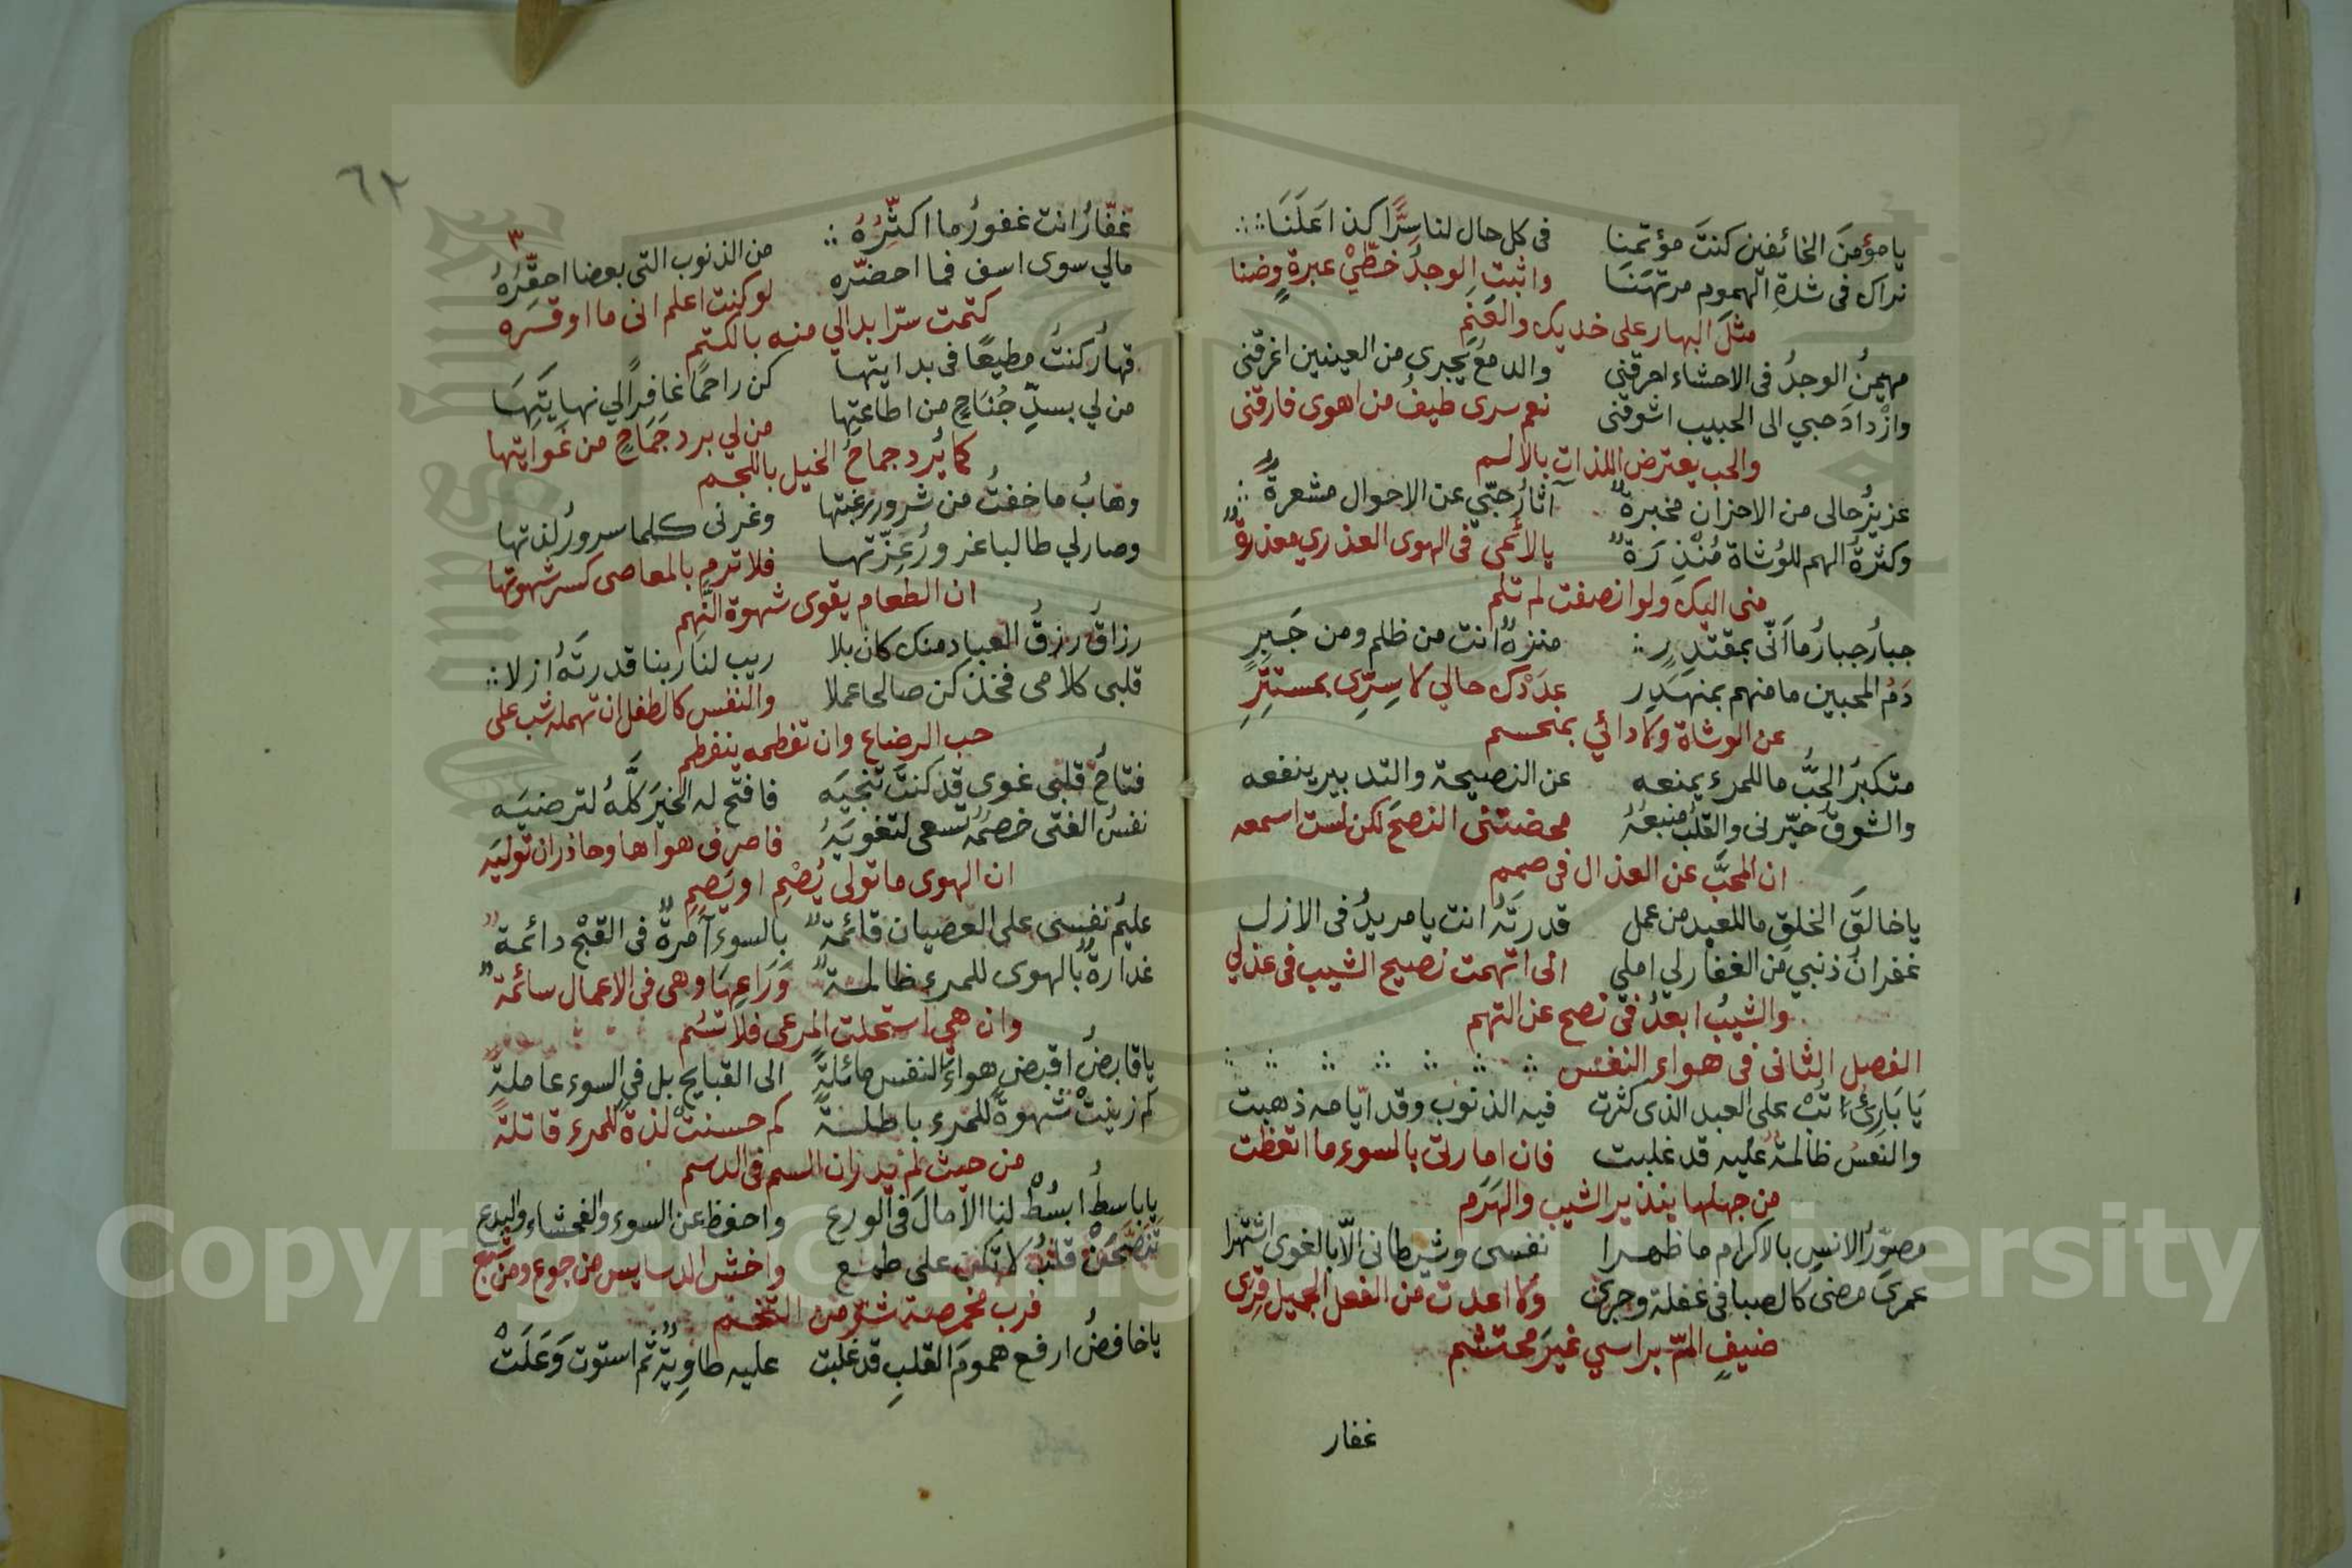 يا مؤمنَ الخائفين كنتَ مؤتمنا في كل حال لنا سرًّا كذا عَلَنَا
نراك في شدةِ الهموم مرتهنَنَا واثبت الوجدُ خطَّيْ عبرةٍ وضنا
مثلَ البهار على خديك والعَنَمِ
مهيمنُ الوجدُ في الاحشاء احرقني والدمعُ يجرى من العينين اغرقنى
وازْدادَ حبي الى الحبيب اشوقنى نعم سرى طيفُ من اهوى فارقنى
والحب يعترض اللذات بالالم
عزيزُ حالى من الاحزان مخبرةٌ آثارُ حبّي عن الاحوال مشعرةٌ
وكثرةُ الهم للوُشاة مُنْذِرَةٌ يالائمى في الهوى العذري معذرةٌ
منى اليك ولو انصفت لم تلم
جبارُ جبارُ ما اَنّى بمقتدِرٍ منزهٌ انت من ظلم ومن جَبِرِ
دَمُ المحبين ما منهم بمنهدِرٍ عدَتْك حالي لا سِرِّى بمستتِرٍ
عن الوشاة ولا دائي بمنحسم
متكبرُ الحبُّ ما للمرء يمنعه عن النصيحة والتدبير ينفعه
والشوقُ حيّرنى والقلبُ منبعُهُ محضتنى النصحَ لكن لست اسمعه
ان المحبَّ عن العذال في صمم
يا خالقَ الخلقِ ما للعبد من عمل قدرتَهُ انت يا مريدُ فى الازل
غفرانُ ذنبي من الغفار لي املي انى اتهمت نصيح الشيب فى عذلي
والشيبُ ابعدُ في نصح عن التهم
الفصل الثانى فى هواء النفس
يَا بَارِئُ تُبْ على العبد الذى كثرت فيه الذنوب وقد ايّامه ذهبت
والنفسُ ظالمةٌ عليه قد غلبت فان امارتى بالسوء ما اتعظت
من جهلها بنذير الشيب والهَرَم
مصوّرُ الانسِ بالاكرام ما ظهرا نفسى وشيطانى الّا بالغوى اشتهرا
عمري مضى كالصبا في غفلة وجرى ولا اعدت من الفعل الجميل قِرَى
ضيفٍ المّ براسي غيرَ محتشم
غفار
٦٢
غفّارُ انت غفورُ ما اكثّرُهُ من الذنوب التى بعضا احقّرُهُ
مالي سوى اسف فما احضّره لو كنت اعلم انى ما اوقره
كتمت سرّا بدالي منه بالكتم
قهارُ كنتُ مطيعًا فى بدايتها كن راحمًا غافرًا لي نهايَتِهَا
من لي بسدِّ جُنَاحٍ من اطاعتِها من لي برد جَمَاحٍ من غَوايتها
كما يُرد جماحُ الخيل باللجم
وهابُ ما خفتُ من شرور رغبتها وغرنى كلما سرورُ لذتها
وصار لي طالبا غرورُ عِزّتها فلا ترم بالمعاصى كسر شهوتها
ان الطعام يقوى شهوة النَّهِم
رزاقُ رزقُ العباد منك كان بلا ريب لنا ربنا قدرتَهُ ازلا
قلبى كلامى فخذ كن صالحا عملا والنفس كالطفل ان تهمله شب على
حب الرضاع وان تفطمه ينفطم
فتاحُ قلبى غوى قد كنتَ تنجيَه فافتح له الخيرَ كلَّهُ لترضيَه
نفسُ الفتى خصمُه تسعى لتغويَهُ فاصرف هواها وحاذر ان توليَه
ان الهوى ما تولى يُصْمِ او يَصِمِ
عليمُ نفسى على العصيان قائمةٌ بالسوء آمرةٌ فى القبْح دائمةٌ
غدارةٌ بالهوى للمرء ظالمةٌ وَرَاعِهَا وهى فى الاعمال سائمةٌ
وان هي استحلت المرعى فلا تسُم
يا قابضُ اقبض هواءَ النفس مائلةً الى القبايح بل في السوء عاملةً
كم زينتْ شهوةً للمرء باطلةً كم حسنتْ لذةً للمرء قاتلةً
من حيث لم يدر ان السم فى الدسم
يا باسطُ ابسُطْ لنا الآمالَ فى الورع واحفظ عن السوء والفحشاء والبدع
تنصّحَنْ قلبُ لا تكن على طمع واخش الدسايس من جوع ومن شبع
فرب مخمصة شر من التخم
يا خافضُ ارفع همومَ القلبِ قد غلبت عليه طاوِيةٌ ثم استوت وَعَلَتْ